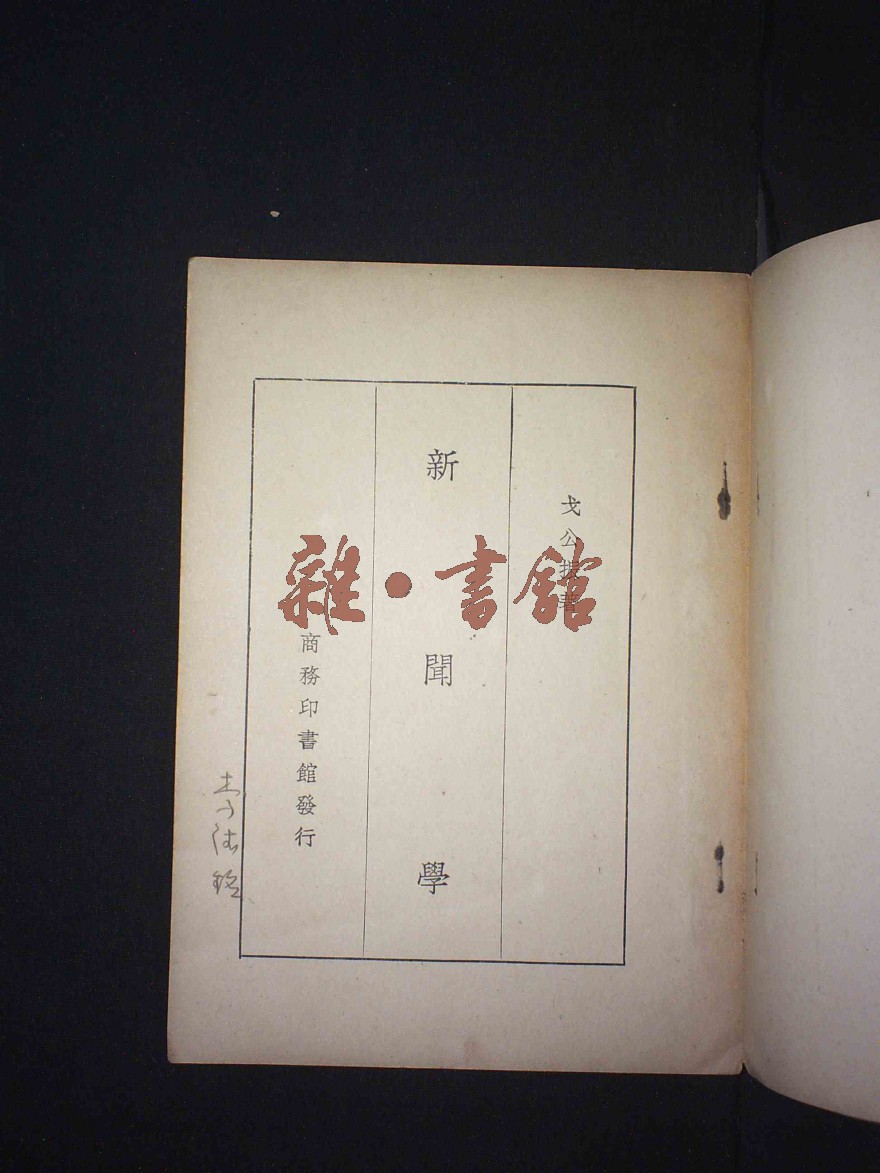 戈公振著
新聞學
商務印書館發行
雜·書館